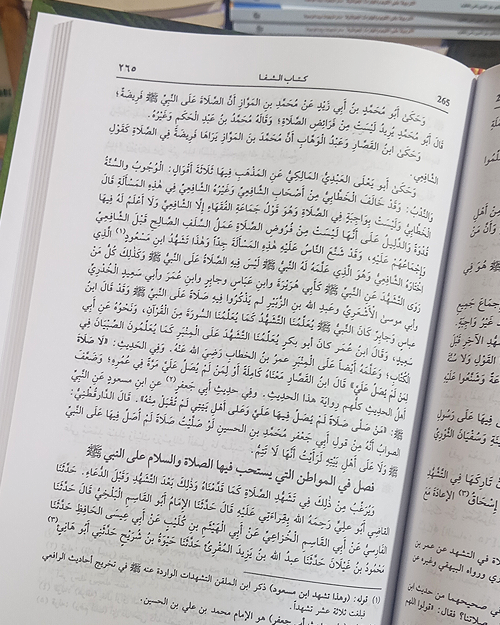 ٢٦٥ كتاب الشفا 265
وَحَكَىٰ أَبُو مُحَمَّدِ بْنُ أَبِي زَيْدٍ عَنْ مُحَمَّدِ بْنِ المَوَّازِ أَنَّ الصَّلَاةَ عَلَى النَّبِيِّ ﷺ فَرِيضَةٌ؛
قَالَ أَبُو مُحَمَّدٍ يُرِيدُ لَيْسَتْ مِنْ فَرَائِضِ الصَّلَاةِ؛ وَقَالَهُ مُحَمَّدُ بْنُ عَبْدِ الْحَكَمِ وَغَيْرُهُ.
وَحَكَىٰ ابْنُ القَصَّارِ وَعَبْدُ الْوَهَّابِ أَنَّ مُحَمَّدَ بْنَ المَوَّازِ يَرَاهَا فَرِيضَةً فِي الصَّلَاةِ كَقَوْلِ
الشَّافِعِي.
وَحَكَىٰ أَبُو يَعْلَى العَبْدِيُّ المَالِكِيُّ عَنِ المَذْهَبِ فِيهَا ثَلَاثَةَ أَقْوَالٍ: الْوُجُوبُ وَالسُّنَّةُ
وَالنَّدْبُ؛ وَقَدْ خَالَفَ الْخَطَّابِيُّ مِنْ أَصْحَابِ الشَّافِعِيِّ وَغَيْرُهُ الشَّافِعِيَّ فِي هَذِهِ المَسْأَلَةِ قَالَ
الْخَطَّابِيُّ وَلَيْسَتْ بِوَاجِبَةٍ فِي الصَّلَاةِ وَهُوَ قَوْلُ جَمَاعَةِ الفُقَهَاءِ إِلَّا الشَّافِعِيَّ وَلَا أَعْلَمُ لَهُ فِيهَا
قُدْوَةً وَالدَّلِيلُ عَلَى أَنَّهَا لَيْسَتْ مِنْ فُرُوضِ الصَّلَاةِ عَمَلُ السَّلَفِ الصَّالِحِ قَبْلَ الشَّافِعِيِّ
وَإِجْمَاعُهُمْ عَلَيْهِ، وَقَدْ شَنَّعَ النَّاسُ عَلَيْهِ هَذِهِ المَسْأَلَةَ جِدًّا وَهَذَا تَشَهُّدُ ابْنِ مَسْعُودٍ(١) الَّذِي
اخْتَارَهُ الشَّافِعِيُّ وَهُوَ الَّذِي عَلَّمَهُ لَهُ النَّبِيُّ ﷺ لَيْسَ فِيهِ الصَّلَاةُ عَلَى النَّبِيِّ ﷺ وَكَذَلِكَ كُلُّ مَنْ
رَوَى التَّشَهُّدَ عَنِ النَّبِيِّ ﷺ كَأَبِي هُرَيْرَةَ وابنِ عباسٍ وجابرٍ وابنِ عمرَ وأبي سعيدٍ الخدريِّ
وأبي موسىٰ الأَشْعَرِيِّ وعبدِ اللهِ بنِ الزُّبَيْرِ لم يَذْكُرُوا فيه صَلَاةً عَلَى النَّبِيِّ ﷺ وَقَدْ قالَ ابنُ
عباسٍ وجابرٌ كانَ النَّبِيُّ ﷺ يُعَلِّمُنَا التَّشَهُّدَ كَمَا يُعَلِّمُنَا السُّورَةَ مِنَ الْقُرْآنِ، وَنَحْوُهُ عَنْ أَبِي
سَعِيدٍ، وَقَالَ ابنُ عمرَ كانَ أبو بكرٍ يُعَلِّمُنَا التَّشَهُّدَ عَلَى المِنْبَرِ كَمَا يُعَلِّمُونَ الصِّبْيَانَ فِي
الْكُتَّابِ؛ وَعَلَّمَهُ أَيْضًا عَلَى المِنْبَرِ عمرُ بنُ الخطابِ رَضِيَ اللهُ عَنْهُ. وَفِي الحَدِيثِ: «لَا صَلَاةَ
لِمَنْ لَمْ يُصَلِّ عَلَيَّ» قَالَ ابْنُ القَصَّارِ مَعْنَاهُ كَامِلَةً أَوْ لِمَنْ لَمْ يُصَلِّ عَلَيَّ مَرَّةً فِي عُمُرِهِ؛ وَضَعَّفَ
أَهْلُ الحديثِ كلُّهم رِوَايَةَ هذا الحديثِ. وفي حديثِ أبي جعفرٍ(٢) عن ابنِ مسعودٍ عَنِ النَّبِيِّ
ﷺ: «مَنْ صَلَّى صَلَاةً لَمْ يُصَلِّ فِيهَا عَلَيَّ وَعَلَى أَهْلِ بَيْتِي لَمْ تُقْبَلْ مِنْهُ». قَالَ الدَّارَقُطْنِيُّ:
الصوابُ أَنَّهُ مِنْ قولِ أبي جَعفرٍ محمدِ بنِ الحسينِ لَوْ صَلَّيْتُ صَلَاةً لَمْ أُصَلِّ فِيهَا عَلَى النَّبِيِّ
ﷺ وَلَا عَلَى أَهْلِ بَيْتِهِ لَرَأَيْتُ أَنَّهَا لَا تَتِمُّ.
فصل في المواطن التي يستحب فيها الصلاة والسلام على النبي ﷺ
وَيُرَغَّبُ مِنْ ذَلِكَ فِي تَشَهُّدِ الصَّلَاةِ كَمَا قَدَّمْنَاهُ وَذَلِكَ بَعْدَ التَّشَهُّدِ وَقَبْلَ الدُّعَاءِ. حَدَّثَنَا
القاضي أبو عليٍّ رَحِمَهُ اللهُ بِقِرَاءَتِي عَلَيْهِ قَالَ حَدَّثَنَا الإمامُ أبو القاسِمِ البَلْخِيُّ قَالَ حَدَّثَنَا
الفَارِسِيُّ عَنْ أَبِي القَاسِمِ الخُزَاعِيِّ عَنْ أَبِي الْهَيْثَمِ بْنِ كُلَيْبٍ عَنْ أَبِي عِيسَى الحَافِظِ حَدَّثَنَا
مَحْمُودُ بْنُ غَيْلَانَ حَدَّثَنَا عبدُ اللهِ بنُ يَزِيدَ المُقْرِئُ حَدَّثَنَا حَيْوَةُ بْنُ شُرَيْحٍ حَدَّثَنِي أَبُو هَانِئٍ(٣)
(١) قوله: (وهذا تشهد ابن مسعود) ذكر ابن الملقن التشهدات الواردة عنه ﷺ في تخريج أحاديث الرافعي
فبلغت ثلاثة عشر تشهداً.
أبي جعفر) هو الإمام محمد بن علي بن الحسين.